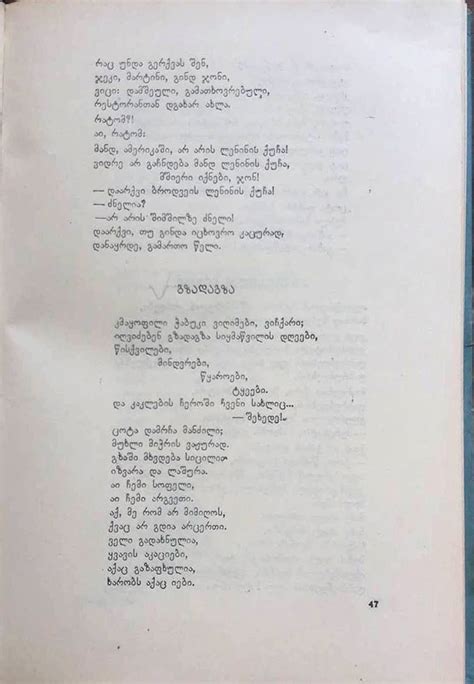 რაც უნდა გერქვას შენ,
ჯეკი, მარტინი, გინდ ჯონი,
ვიცი: დამშეული, გამათხოვრებული,
რესტორანთან დგახარ ახლა.
რატომ?!
აი, რატომ:
მანდ, ამერიკაში, არ არის ლენინის ქუჩა!
ვიდრე არ გაჩნდება მანდ ლენინის ქუჩა,
მშიერი იქნები, ჯონ!
— დაარქვი ბროდვეის ლენინის ქუჩა!
— ძნელია?
—არ არის შიმშილზე ძნელი!
დაარქვი, თუ გინდა იცხოვრო კაცურად,
დანაყრდე, გამართო წელი.
გზადაგზა
კმაყოფილი ჭაბუკი ვიღიმები, ვიჩქარი;
იღვიძებენ გზადაგზა სიყმაწვილის დღეები,
წისქვილები,
მინდვრები,
წყაროები,
ტყეები.
და კაკლების ჩეროში ჩვენი სახლიც...
— შეხედე!..
ცოტა დამრჩა მანძილი;
მუხლი მიჭრის ვაჟურად.
გზაში მხვდება სიცილით
იზვარა და ლაშურა.
აი ჩემი სოფელი,
აი ჩემი არგვეთი.
აქ, მე რომ არ მიმიღოს,
ქვაც არ გდია არცერთი.
ველი გადახნულია,
ყვავის აკაციები,
აქაც გაზაფხულია,
ხარობს აქაც იები.
47